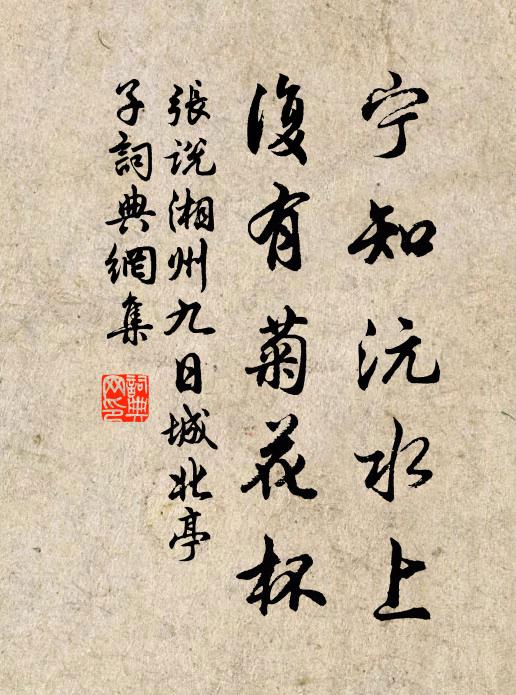 宁知沅水上
復有菊花杯
張說湘州九日城北亭
子詞典網集
詞典网印